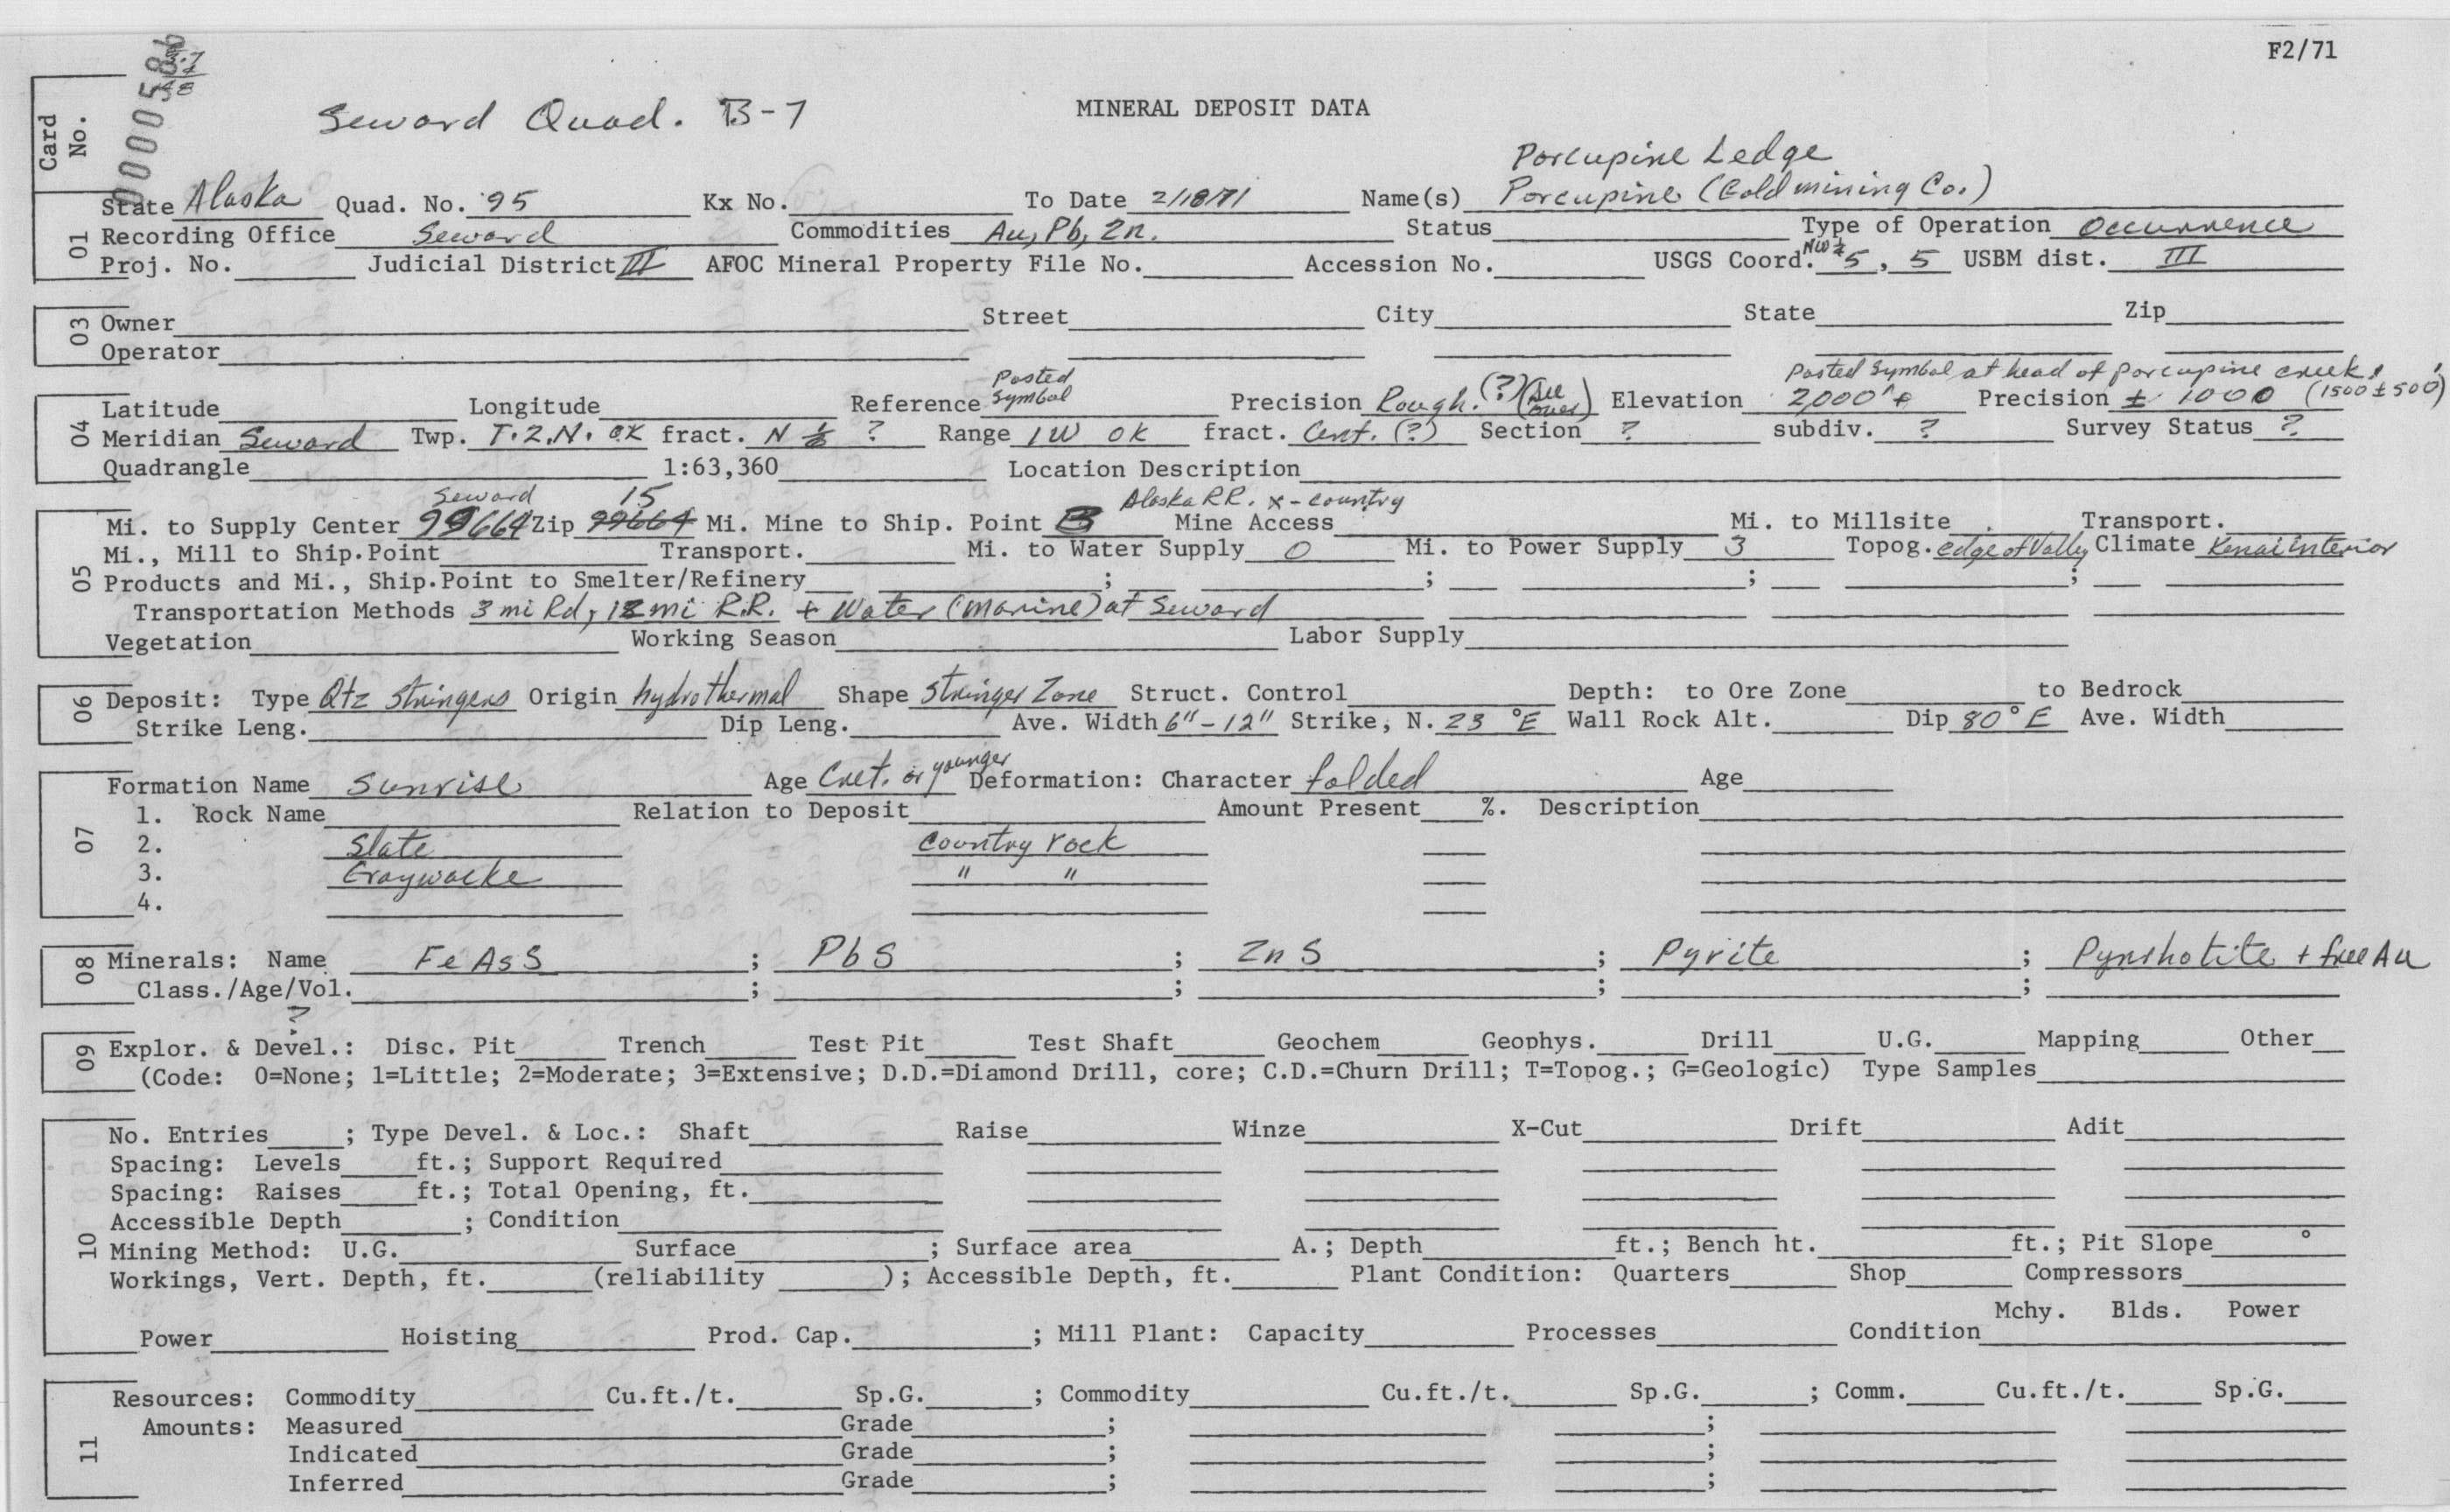 F2/71
Card No.
Seward Quad. B-7
MINERAL DEPOSIT DATA
Porcupine Ledge
01 State Alaska Quad. No. 95 Kx No. To Date 2/18/71 Name(s) Porcupine (Gold mining Co.)
Recording Office Seward Commodities Au, Pb, Zn. Status Type of Operation Occurrence
Proj. No. Judicial District III AFOC Mineral Property File No. Accession No. USGS Coord. NW¼ 5, 5 USBM dist. III
03 Owner Street City State Zip
Operator
Posted Symbol at head of porcupine creek
04 Latitude Longitude Reference Posted Symbol Precision Rough. (?) (See over) Elevation 2,000'± Precision ± 1000 (1500±500)'
Meridian Seward Twp. T.2.N. OK fract. N ½ ? Range 1W OK fract. Cent. (?) Section ? subdiv. ? Survey Status ?
Quadrangle 1:63,360 Location Description
Seward 15 Alaska RR. x-country
05 Mi. to Supply Center 99664 Zip 99664 Mi. Mine to Ship. Point 3 Mine Access Mi. to Millsite Transport.
Mi., Mill to Ship.Point Transport. Mi. to Water Supply 0 Mi. to Power Supply 3 Topog. edge of Valley Climate Kenai interior
Products and Mi., Ship.Point to Smelter/Refinery ; ; ; ;
Transportation Methods 3 mi Rd, 12 mi R.R. + Water (marine) at Seward
Vegetation Working Season Labor Supply
06 Deposit: Type Qtz Stringers Origin hydrothermal Shape Stringer Zone Struct. Control Depth: to Ore Zone to Bedrock
Strike Leng. Dip Leng. Ave. Width 6"-12" Strike, N. 23 °E Wall Rock Alt. Dip 80°E Ave. Width
07 Formation Name Sunrise Age Cret. or younger Deformation: Character folded Age
1. Rock Name Relation to Deposit Amount Present %. Description
2. Slate Country rock
3. Graywacke " "
4.
08 Minerals: Name FeAsS ; PbS ; ZnS ; Pyrite ; Pyrrhotite + free Au
Class./Age/Vol. ; ; ; ;
?
09 Explor. & Devel.: Disc. Pit Trench Test Pit Test Shaft Geochem Geophys. Drill U.G. Mapping Other
(Code: 0=None; 1=Little; 2=Moderate; 3=Extensive; D.D.=Diamond Drill, core; C.D.=Churn Drill; T=Topog.; G=Geologic) Type Samples
10 No. Entries ; Type Devel. & Loc.: Shaft Raise Winze X-Cut Drift Adit
Spacing: Levels ft.; Support Required
Spacing: Raises ft.; Total Opening, ft.
Accessible Depth ; Condition
Mining Method: U.G. Surface ; Surface area A.; Depth ft.; Bench ht. ft.; Pit Slope °
Workings, Vert. Depth, ft. (reliability ); Accessible Depth, ft. Plant Condition: Quarters Shop Compressors
Mchy. Blds. Power
Power Hoisting Prod. Cap. ; Mill Plant: Capacity Processes Condition
11 Resources: Commodity Cu.ft./t. Sp.G. ; Commodity Cu.ft./t. Sp.G. ; Comm. Cu.ft./t. Sp.G.
Amounts: Measured Grade ; ;
Indicated Grade ; ;
Inferred Grade ; ;